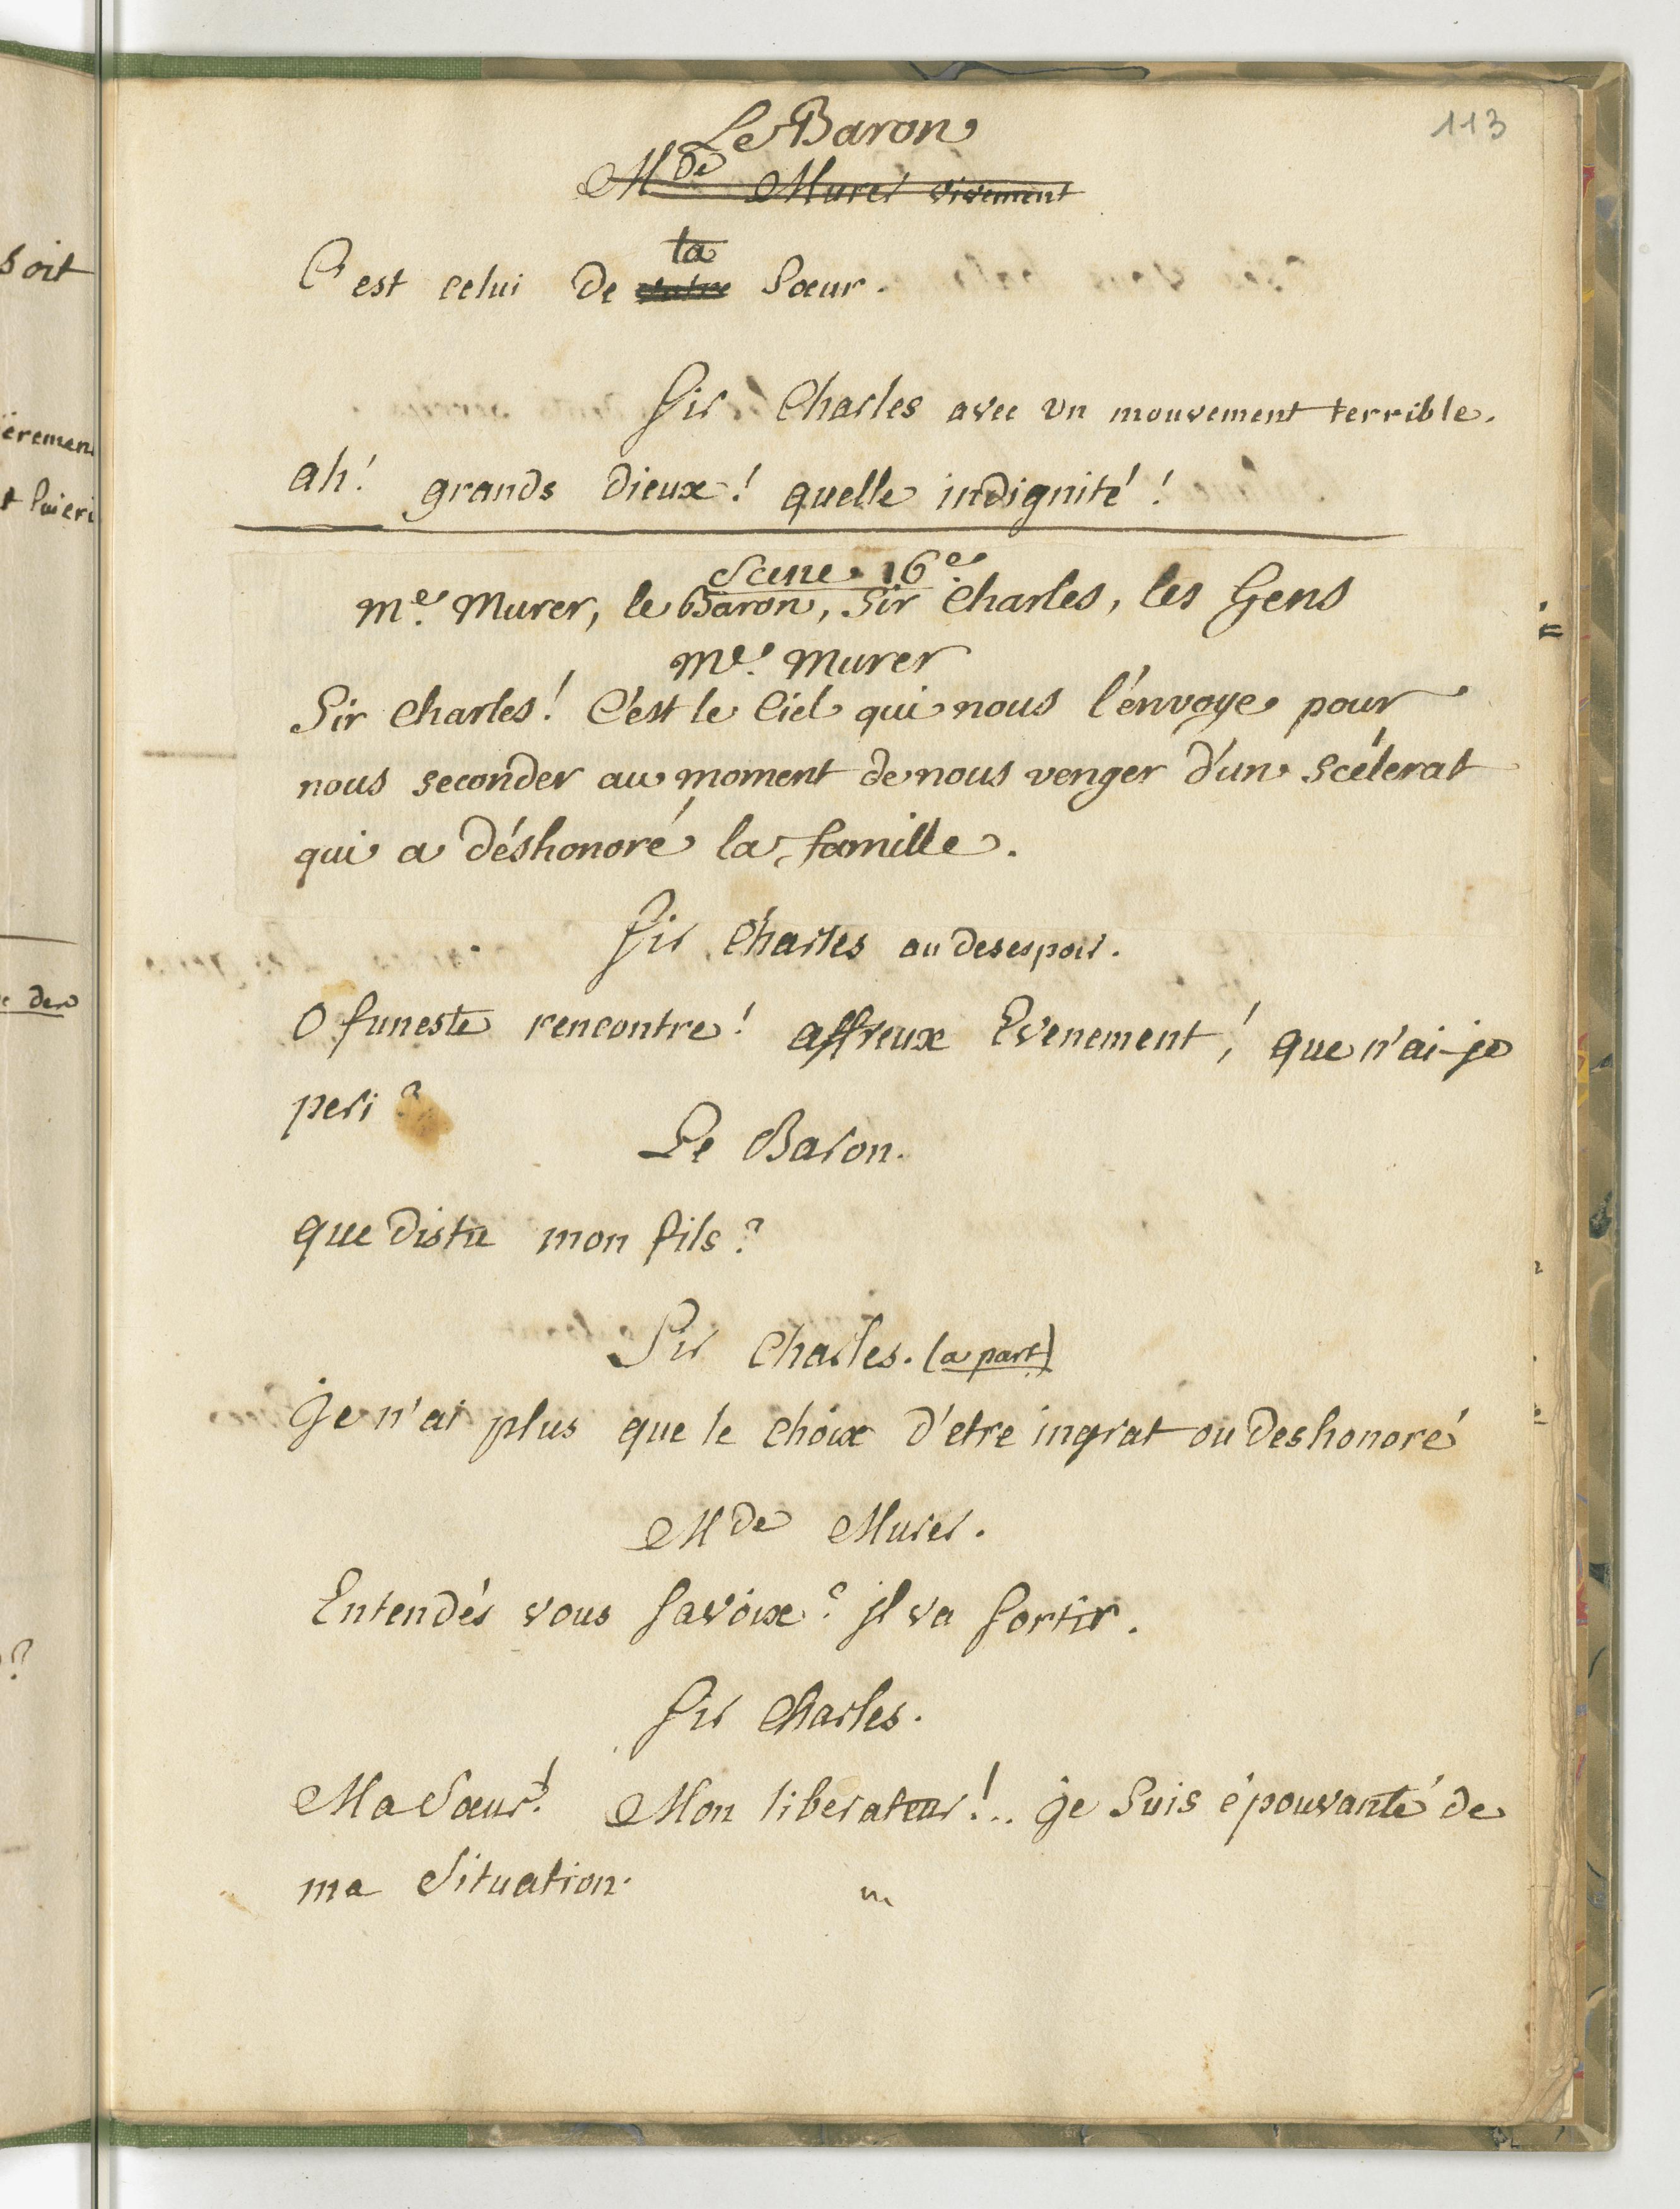 113
Le Baron
Mde Murer vivement
ta
C'est celui de votre Sœur.
Sir Charles avec un mouvement terrible.
ah! grands Dieux! quelle indignité!
Scene 16e
Me. Murer, le Baron, Sir Charles, les Gens
Me. Murer
Sir Charles! C'est le Ciel qui nous l'énvoye pour
nous seconder au moment de nous venger d'un Scélerat
qui a déshonoré la famille.
Sir Charles au desespoir.
O funeste rencontre! affreux Evenement! que n'ai-je
peri?
Le Baron.
que distu mon fils?
Sir Charles. (a part)
Je n'ai plus que le choix d'etre ingrat ou deshonoré
Mde Murer.
Entendés vous savoix? il va sortir.
Sir Charles.
Ma Sœur! Mon liberateur!.. je suis épouvanté de
ma Situation.
soit
erement
der
?